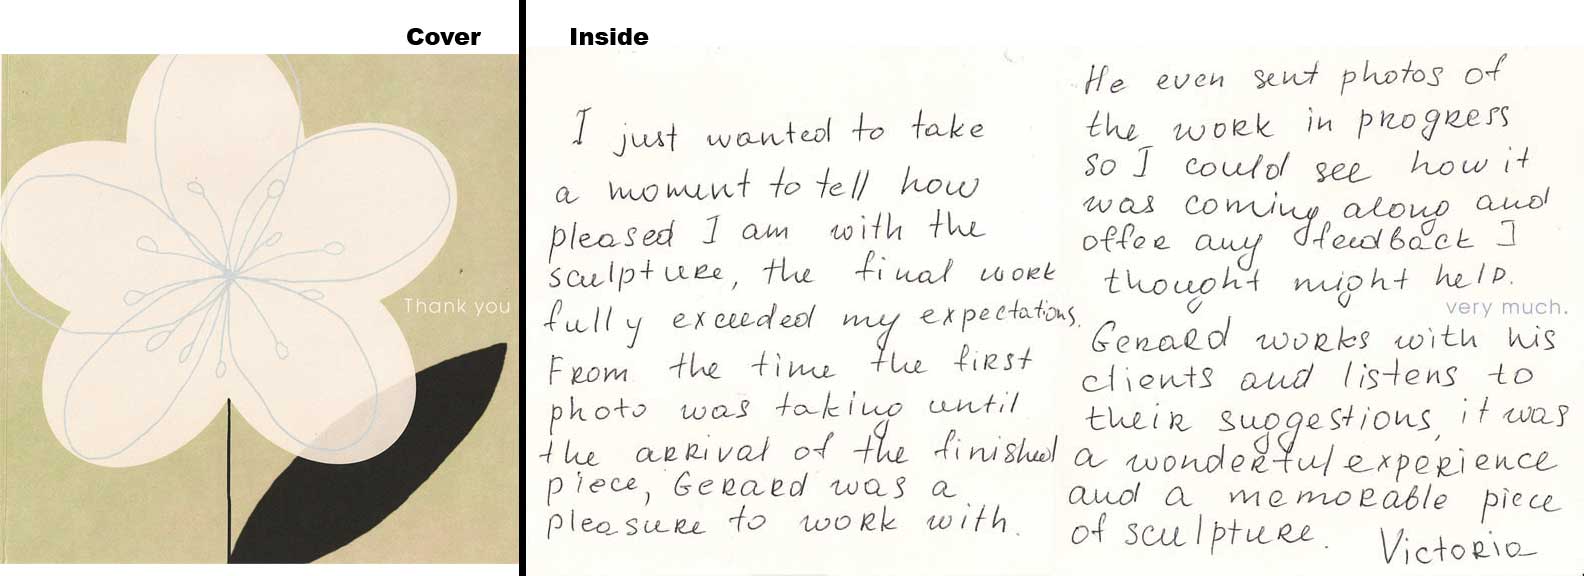 Cover
Thank you
Inside
I just wanted to take
a moment to tell how
pleased I am with the
sculpture, the final work
fully exceeded my expectations.
From the time the first
photo was taking until
the arrival of the finished
piece, Gerard was a
pleasure to work with.
He even sent photos of
the work in progress
so I could see how it
was coming along and
offer any feedback I
thought might help.
very much.
Gerard works with his
clients and listens to
their suggestions, it was
a wonderful experience
and a memorable piece
of sculpture.
Victoria